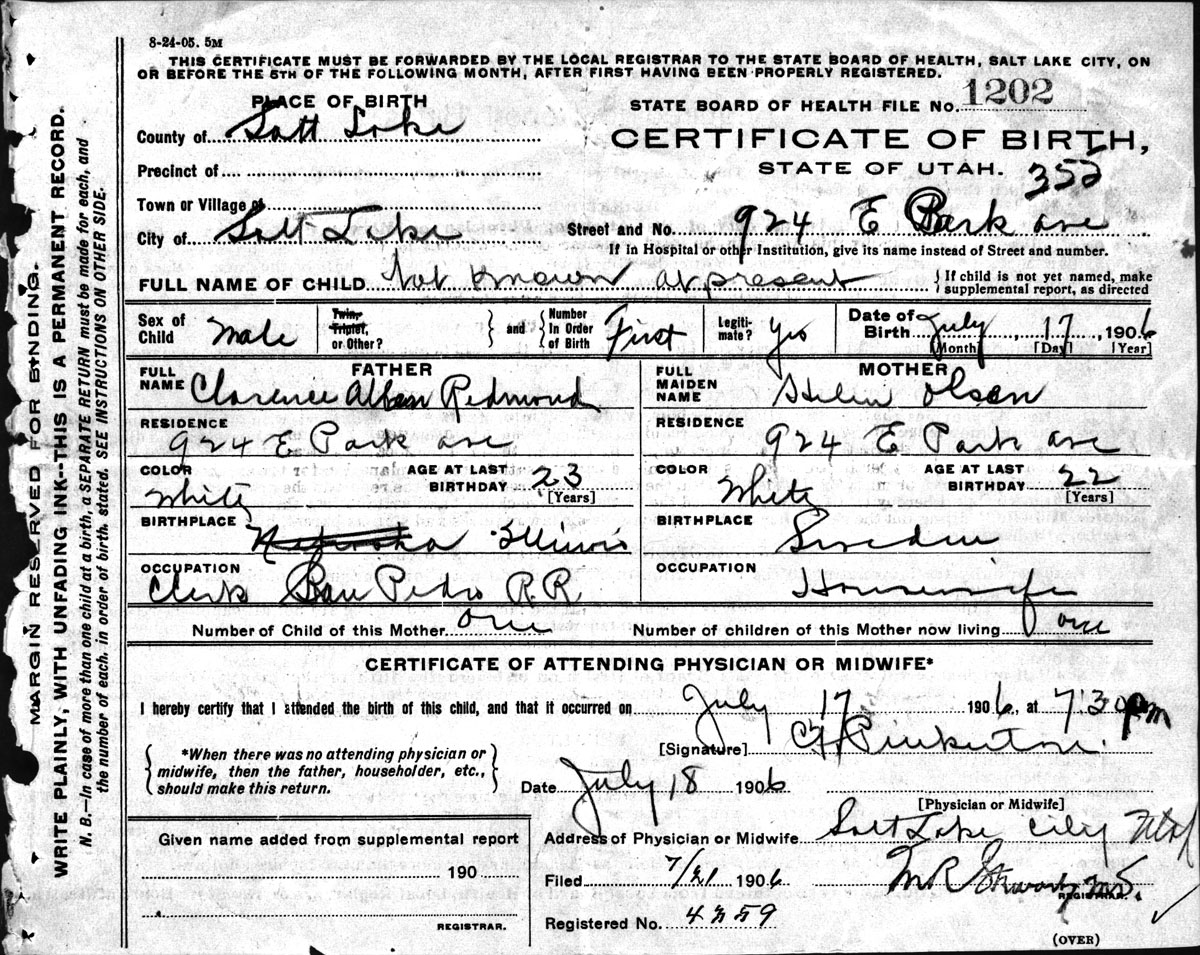 8-24-05. 5M
THIS CERTIFICATE MUST BE FORWARDED BY THE LOCAL REGISTRAR TO THE STATE BOARD OF HEALTH, SALT LAKE CITY, ON
OR BEFORE THE 5TH OF THE FOLLOWING MONTH, AFTER FIRST HAVING BEEN PROPERLY REGISTERED.
MARGIN RESERVED FOR BINDING.
WRITE PLAINLY, WITH UNFADING INK--THIS IS A PERMANENT RECORD.
N. B.—In case of more than one child at a birth, a SEPARATE RETURN must be made for each, and
the number of each, in order of birth, stated. SEE INSTRUCTIONS ON OTHER SIDE.
PLACE OF BIRTH
STATE BOARD OF HEALTH FILE No. 1202
County of Salt Lake
CERTIFICATE OF BIRTH,
Precinct of
STATE OF UTAH. 352
Town or Village of
City of Salt Lake Street and No. 924 E Park ave
If in Hospital or other Institution, give its name instead of Street and number.
FULL NAME OF CHILD Not Known at present
If child is not yet named, make
supplemental report, as directed
Sex of Child Male
Twin, Triplet, or Other?
and Number In Order of Birth First
Legiti-mate? Yes
Date of Birth July 17, 1906
[Month] [Day] [Year]
FATHER
FULL NAME Clarence Redmond
RESIDENCE
924 E Park ave
COLOR White AGE AT LAST BIRTHDAY 23
[Years]
BIRTHPLACE Illinois
OCCUPATION
Clerk San Pedro R.R.
MOTHER
FULL MAIDEN NAME Olsen
RESIDENCE
924 E Park ave
COLOR White AGE AT LAST BIRTHDAY 22
[Years]
BIRTHPLACE Sweden
OCCUPATION
Housewife
Number of Child of this Mother one Number of children of this Mother now living one
CERTIFICATE OF ATTENDING PHYSICIAN OR MIDWIFE*
I hereby certify that I attended the birth of this child, and that it occurred on July 17 1906, at 730 pm
*When there was no attending physician or
midwife, then the father, householder, etc.,
should make this return.
[Signature] Pinkerton
Date July 18 1906
[Physician or Midwife]
Given name added from supplemental report
190
REGISTRAR.
Address of Physician or Midwife Salt Lake City Utah
Filed 7/21 1906 M R Stewart MD
REGISTRAR.
Registered No. 4359
(OVER)